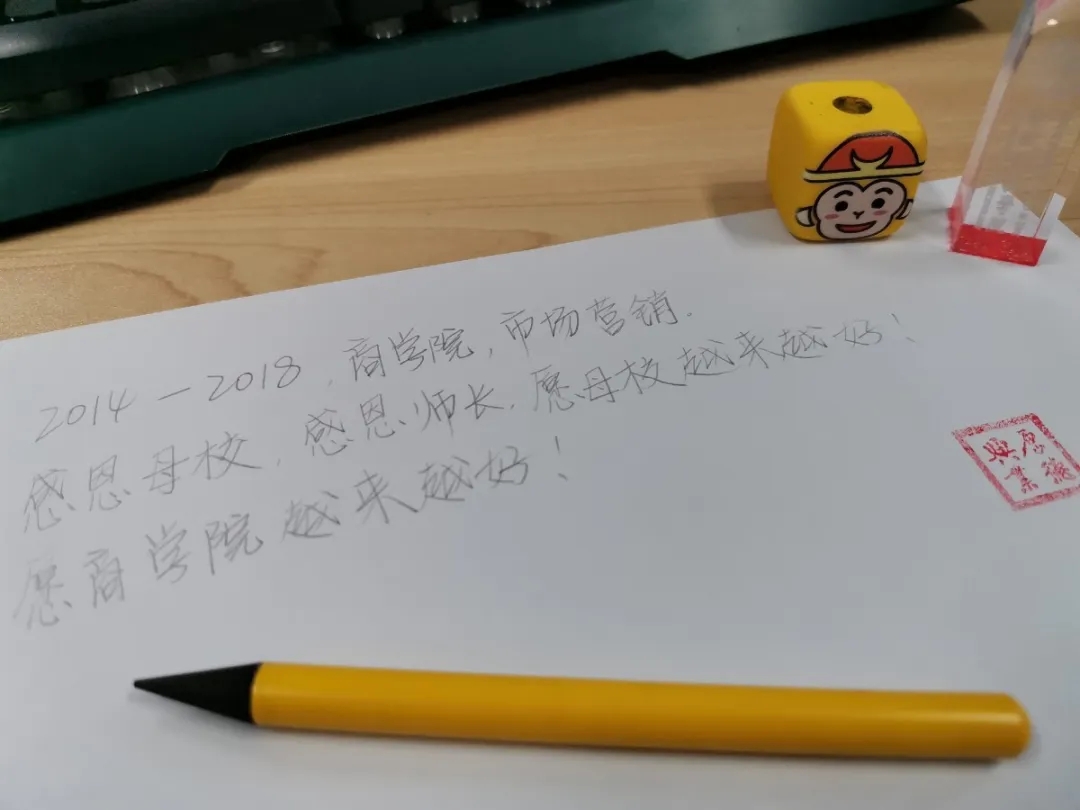 2014—2018，商学院，市场营销.
感恩母校，感恩师长.愿母校越来越好！
愿商学院越来越好！
厚德
興業